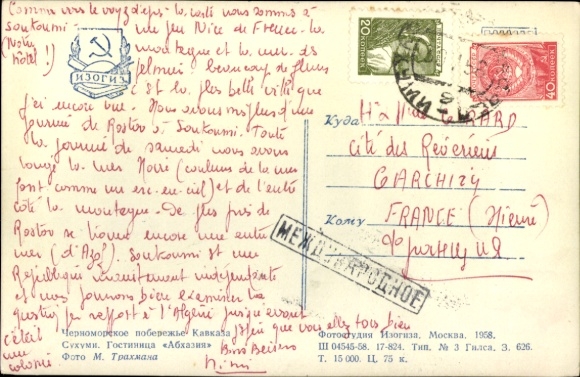 Comme vous le voyez d'après la carte nous sommes à
Soukoumi une peu Nice de France - la
(Notre montagne et la mer - des
hôtel !) palmiers beaucoup de fleurs
C'est la plus belle ville que
j'ai encore vue. Nous avons mis plus d'une
journée de Rostov à Soukoumi. Toute
la journée de samedi nous avons
longé la mer Noire (couleurs de la mer
font comme un arc-en-ciel) et de l'autre
côté la montagne. De plus près de
Rostov se trouve encore une autre
mer (d'Azof). Soukoumi est une
République
et nous pouvons bien examiner la
question par rapport à l'Algérie jusque avant
c'était une colonie
J'espère que vous allez tous bien
Bons Baisers
ИЗОГИЗ
20
КОПЕЕК
40 КОПЕЕК
Куда
GERARD
Cité des Révériens
GARCHIZY
Кому
FRANCE (Nièvre)
Франция
МЕЖДУНАРОДНОЕ
Черноморское побережье Кавказа
Сухуми. Гостиница «Абхазия»
Фото М. Трахмана
Фотостудия Изогиза, Москва. 1958.
Ш 04545-58. 17-824. Тип. № 3 Гилса. З. 626.
Т. 15 000. Ц. 75 к.